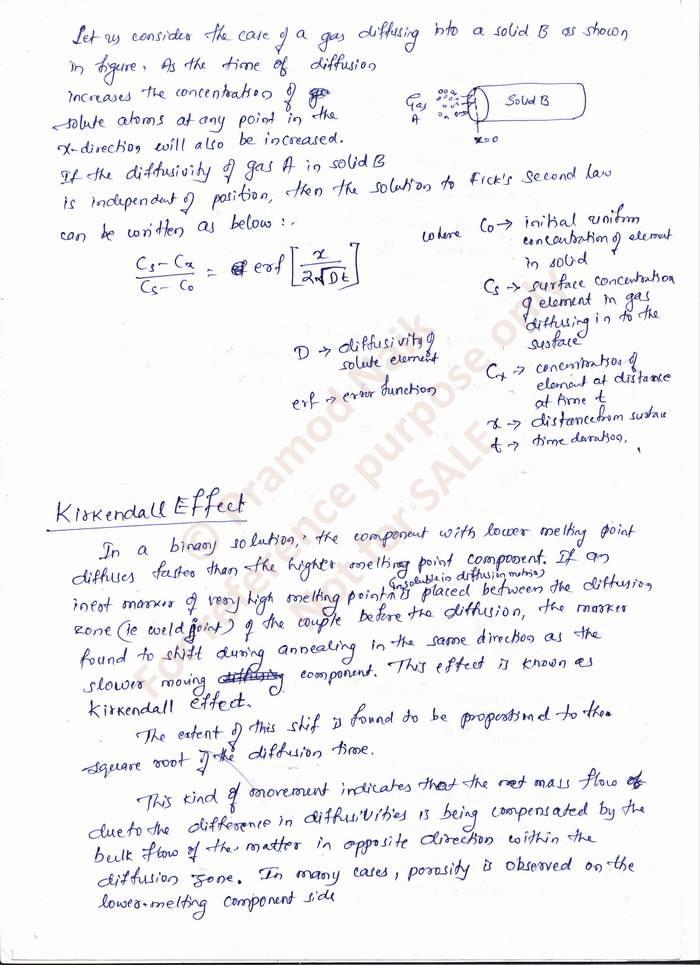 Let us consider the case of a gas diffusing into a solid B as shown
in figure. As the time of diffusion
increases the concentration of
solute atoms at any point in the
x-direction will also be increased.
Gas
A
Solid B
x=0
If the diffusivity of gas A in solid B
is independent of position, then the solution to Fick's second law
can be written as below :.
Cs - Cx / Cs - Co = erf [ x / 2√Dt ]
where Co → initial uniform
concentration of element
in solid
Cs → surface concentration
of element in gas
diffusing in to the
surface
D → diffusivity of
solute element
erf → error function
Cx → concentration of
element at distance
at time t
x → distance from surface
t → time duration.
© Pramod Naik
For reference purpose only
Not for SALE
Kirkendall Effect
In a binary solution, the component with lower melting point
diffuses faster than the higher melting point component. If an
(insoluble in diffusion matrix)
inert marker of very high melting point is placed between the diffusion
zone (ie weld joint) of the couple before the diffusion, the marker
found to shift during annealing in the same direction as the
slower moving diffusing component. This effect is known as
Kirkendall effect.
The extent of this shif is found to be proportional to the
square root of the diffusion time.
This kind of movement indicates that the net mass flow of
due to the difference in diffusivities is being compensated by the
bulk flow of the matter in opposite direction within the
diffusion zone. In many cases, porosity is observed on the
lower-melting component side